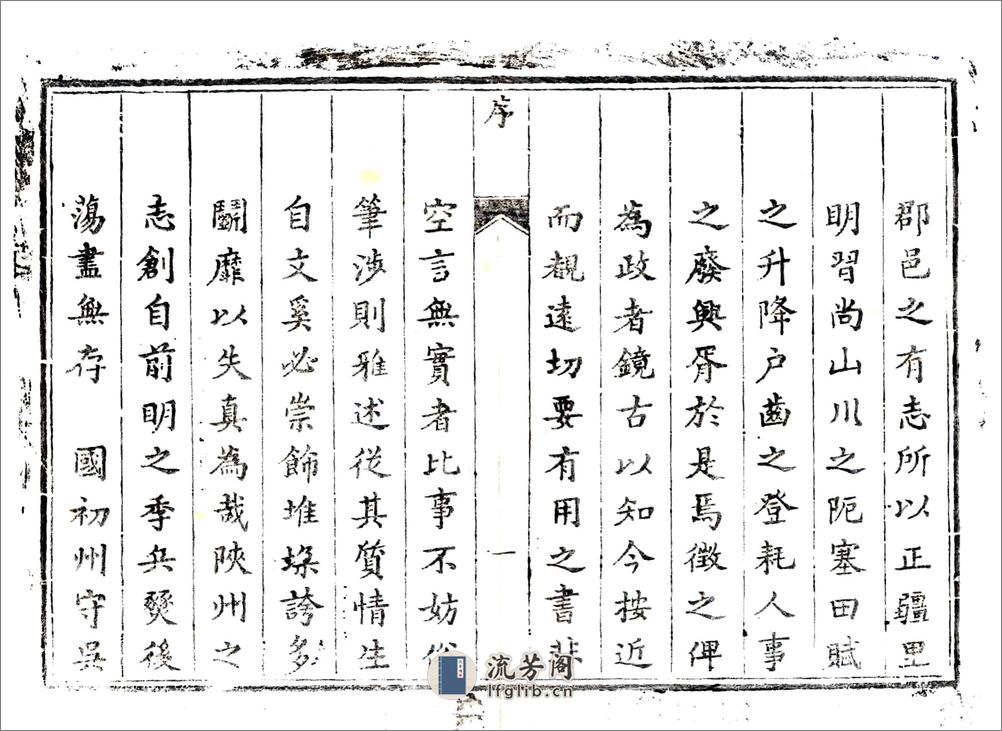 郡邑之有志所以正疆里
明習尚山川之阨塞田賦
之升降户齒之登耗人事
之廢興胥於是焉徵之俾
為政者鏡古以知今按近
而覩遠切要有用之書非
序
一
空言無實者比事不妨俗
筆涉則雅述從其質情生
自文奚必崇飾堆垜誇多
鬭靡以失真為哉陝州之
志創自前明之季兵燹後
蕩盡無存 國初州守吳
流芳阁
lfglib.cn